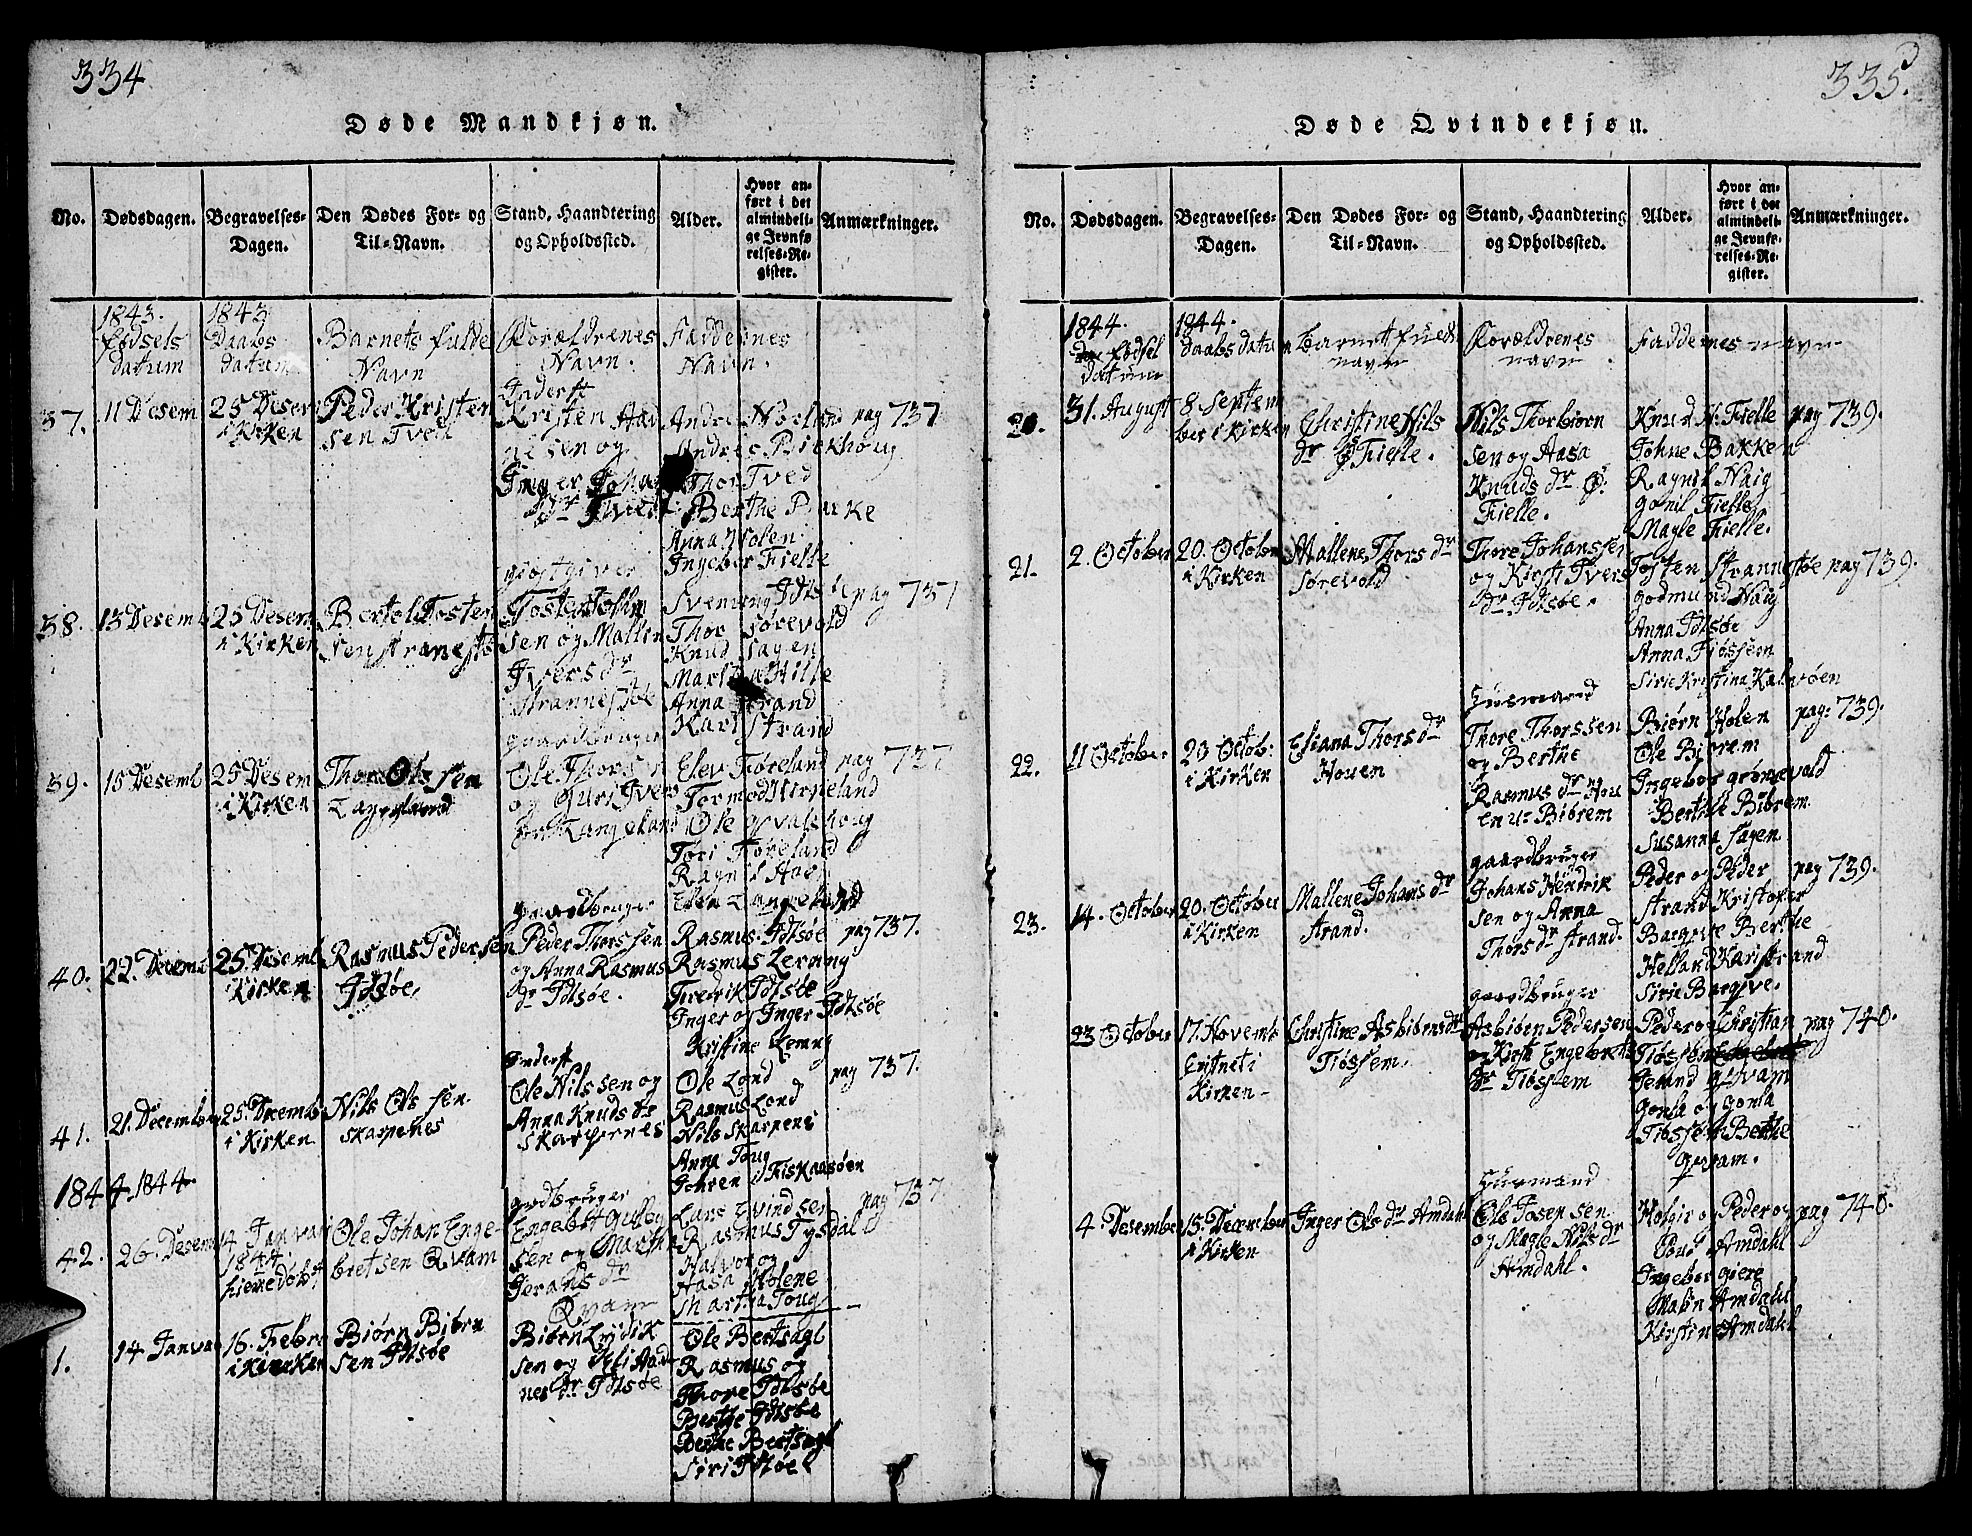 334
Døde Mandkjøn.
No.
Dødsdagen.
Begravelses-
Dagen.
Den Dødes For- og
Til-Navn.
Stand, Haandtering
og Opholdssted.
Alder.
Hvor an-
ført i det
almindeli-
ge Jevnfø
relses-Re-
gister.
Anmærkninger.
1843.
fødsels
datum
1843
Daabs
datum
Barnets fulde
Navn
Forældrenes
Navn.
Faddernes
Navn.
37.
11 Desem
25 Desem
i Kirken
Peder Kristen
sen Tved
Inderst
Kristen Aad
nesen og
Inger Johans
dr Tved
Andre Noeland
Andres Birkhoug
Thor Tved
Berthe Barke
Anna Molen
Ingebor Fielle
pag 737
38.
13 Desemb
25 Desem
i Kirken
Bertel Tosten
sen stranestøe
giestgiver
Tosten
sen og Mallen
Ivers dr
Strannestøe
Svennung Idtsøe
Thor sørevold
Knud sagen
Martha Hille
Anna strand
Kari strand
pag 737
39.
15 Desemb
25 Desem
i Kirken
Thor Olssen
Langeland
gaardbruger
Ole Thorsen
og Guri Ivers
dr Langeland
Elev Føreland
Tormod Hirpeland
Ole Qvalshoug
Tori Føreland
Ragnil Hoeg
Elen Langeland
pag 737
40.
22. Decemb
25. Desemb
i Kirken
Rasmus Pedersen
Idsøe.
gaardbruger
Peder Thorssen
og Anna Rasmus
dr Idtsøe.
Rasmus Idtsøe
Rasmus Lerang
Fredrik Idtsøe
Inger og Inger Idtsøe
Kristine Lerang
pag 737.
41.
21. December
25. Decemb
i Kirken
Nils Olssen
Skarpenes
Inderst
Ole Nilssen og
Anna Knuds dr
Skarpernes
Ole Lond
Rasmus Lond
Nils Skarpenes
Anna Toug
Johren i Fiskaasøen
pag 737.
1844. 1844.
42.
26. Desemb
4 Janvari
1844
hiemedøbt
Ole Johan Enge-
bretsen Qvam
gardbruger
Engebrt Gulbr
sen og Martha
Jerands dr
Qvam
Lars Eyvindsen
Rasmus Tysdal
Halvor og
Aasa Molene
Martha Toug
pag 737
1.
14 Janvar
16. Febr
i Kirken
Biørn Biørn
sen Idtsøe
Biørn Lydik
sen og Eli Aad
nes dr Idtsøe
Ole Bertsagl
Rasmus og
Thore Idtsøe
Berthe Idtsøe
Berthe Bertsagl
Siri Idtsøe
335.
Døde Qvindekjøn.
No.
Dødsdagen.
Begravelses-
Dagen.
Den Dødes For- og
Til-Navn.
Stand, Haandtering
og Opholdssted.
Alder.
Hvor an-
ført i det
almindeli-
ge Jevnfø-
relses-Re-
gister.
Anmærkninger.
1844.
fødsel
datum
1844.
daabs datum
barnet fulde
navn
Forældrenes
navn.
Faddernes navn
20.
31. August
8 Septem
ber i Kirken
Christine Nils
dr Fielle.
Nils Thorbiørn
sen og Aasa
Knuds dr
Fielle.
Knud N. Fielle
Johne Bakken
Ragnil Haig
gonil Fielle
Magle Fielle.
pag 739.
21.
2. October
20. October
i Kirken
Mallene Thors dr
sørevold
Thore Johanssen
og Kirsti Ivers
dr Idtsøe.
Tosten Strannestøe
godmund Haig
Anna Idtsøe
Anna Fiøssem
Sirie Kristina Kalvøen
pag 739.
22.
11 October
20 Octob:
i Kirken
Eliana Thors dr
Houen
Husmand
Thore Thorssen
og Berthe
Rasmus dr Hou
en u- Bibrem
Biørn Holen
Ole Biørem
Ingebor grønevold
Berthe Bibrem
Susanna Sagen
pag: 739.
23.
14. October
20. October
i Kirken
Mallene Johans dr
Strand.
gaardbruger
Johans Hendrik
sen og Anna
Thors dr Strand.
Peder og Peder
Strand Kristofer
Bargeve Berthe
Helland Kari strand
Sirie Bargeve.
pag 739.
23 October
17. Novemb
Cristnet i
Kirken-
Christine Asbiørns dr
Tiøssem.
gaardbruger
Asbiørn Pedersen
og Kirsti Engebrets
dr Tiøssem
Peder og Christian
Tiøssem
Jerand Qvam
Gonla og Gonla
Tiøssem Berthe
Qvam.
pag 740.
4. Desember
15. December
i Kirken
Inger Ols dr Amdahl
Husmand
Ole Tosensen
og Magle Nils dr
Amdahl.
Holgir og Peder og
Poul Amdahl
Ingebor giere
Malin Amdahl
Kirsten Amdahl
pag 740.